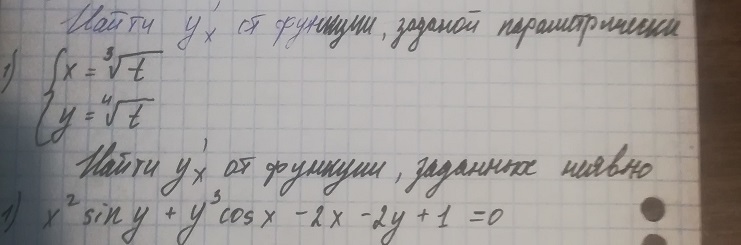 Найти y'x от функции, заданой параметрически
1) { x = ∛t
y = ∜t
Найти y'x от функции, заданных неявно
1) x² sin y + y³ cos x - 2x - 2y + 1 = 0